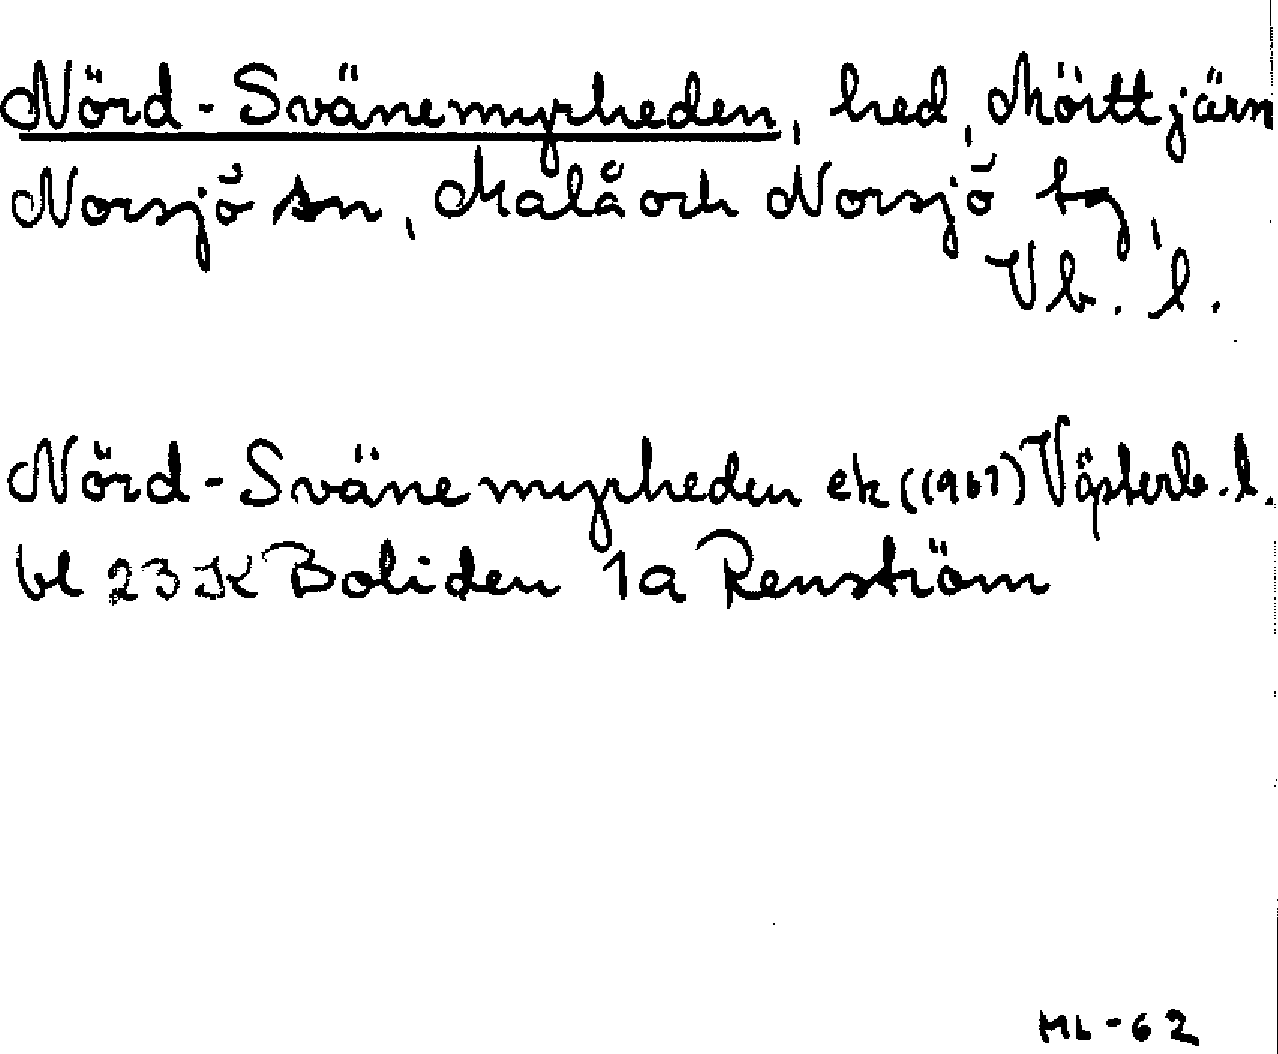 Nörd-Svänemyrheden, hed, Mörttjärn
Norsjö sn, Malå och Norsjö tg,
Vb. l.
Nörd-Svänemyrheden ek (1967) Västerb. l.
bl 23 K Boliden 1a Renström
ML-62